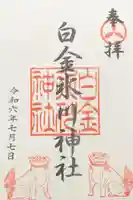 奉拝
白金氷川神社
白金氷川神社
令和六年七月七日